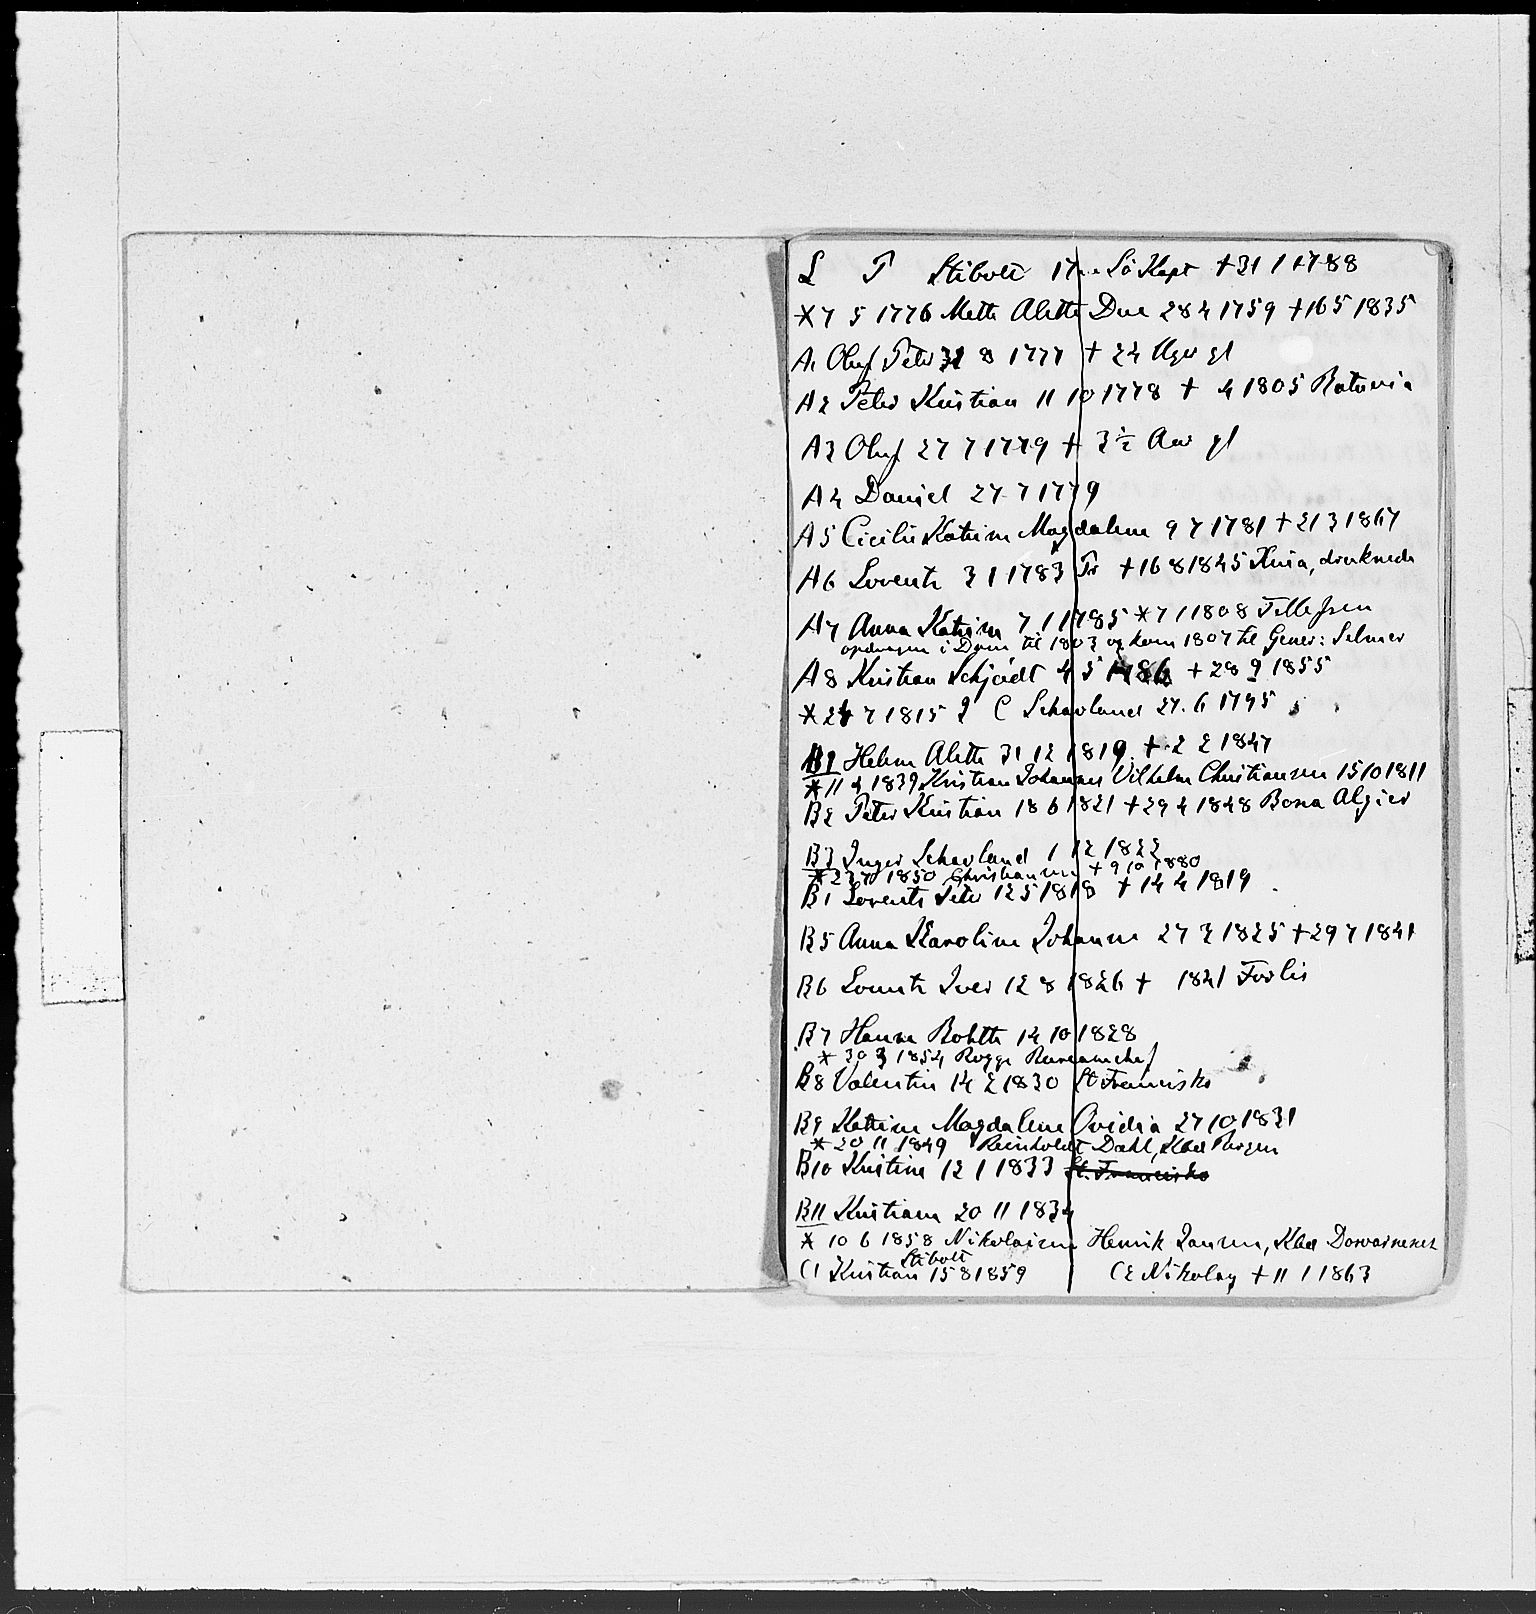 L F Stibolt 17.. Sö Kapt + 31 1 1788
* 7 5 1776 Mette Alette Due 28 4 1759 + 16 5 1835
A1 Oluf Peter 31 8 1777 + 24 Uger gl
A2 Peter Kristian 11 10 1778 + 4 1805 Batavia
A3 Oluf 27 7 1779 + 3½ Aar gl
A4 Daniel 27 7 1779
A5 Cicilie Katrine Magdalene 9 7 1781 + 21 3 1867
A6 Lorentz 3 1 1783 Tr + 16 8 1845 druknede
A7 Anna Katrine 7 1 1785 * 7 1 1808 Tellefsen
opdragen i Dram til 1803 og kom 1807 til Gener: Selmer
A8 Kristian Schjödt 4 5 1786 + 28 9 1855
* 24 7 1815 J C Schavland 27. 6 1795
B1 Helene Alette 31 12 1819 + 2 2 1847
* 11 4 1839 Kristian Johannes Vilhelm Christiansen 15 10 1811
B2 Peter Kristian 18 6 1821 + 29 4 1848 Bona Algier
B3 Inger Schavland 1 12 1822
* 23 7 1850 Christiansen + 9 10 1880
B1 Lorents Peter 12 5 1818 + 14 4 1819
B5 Anna Karoline Johanne 27 3 1825 + 29 7 1841
B6 Lorentz Iver 12 8 1826 + 1841 Forlis
B7 Hanna Bolette 14 10 1828
* 30 3 1854 Rogge Bureauchef
B8 Valentin 14 2 1830 St Francisko
B9 Katrine Magdalene Ovidia 27 10 1831
* 20 11 1849 Reinholdt Dahl, Kbd Bergen
B10 Kristine 12 1 1833 St. Francisko
B11 Kristiane 20 11 1834
* 10 6 1858 Nikolaisen Henrik Jansen, Kbd
Stibolt
C1 Kristian 15 8 1859 C2 Nikolay + 11 1 1863